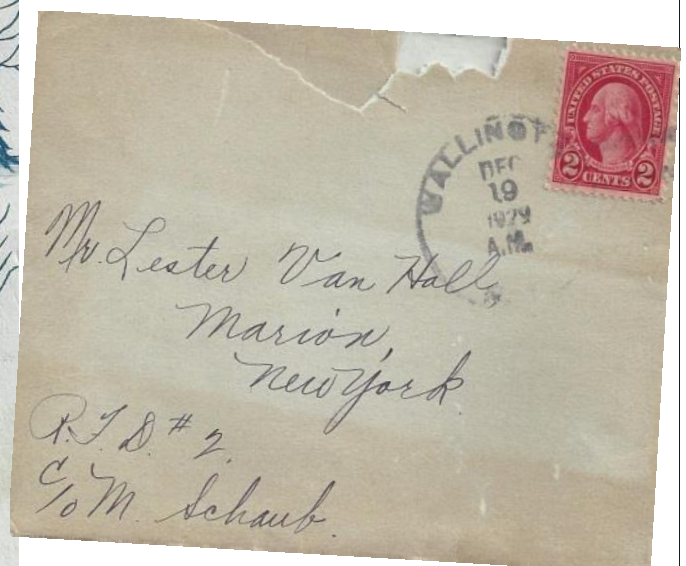 UNITED STATES POSTAGE
2 CENTS 2
DEC
19
1929
A.M.
Mr. Lester Van Hall,
Marion,
New York.
R.F.D. # 2.
c/o M. Schaub.